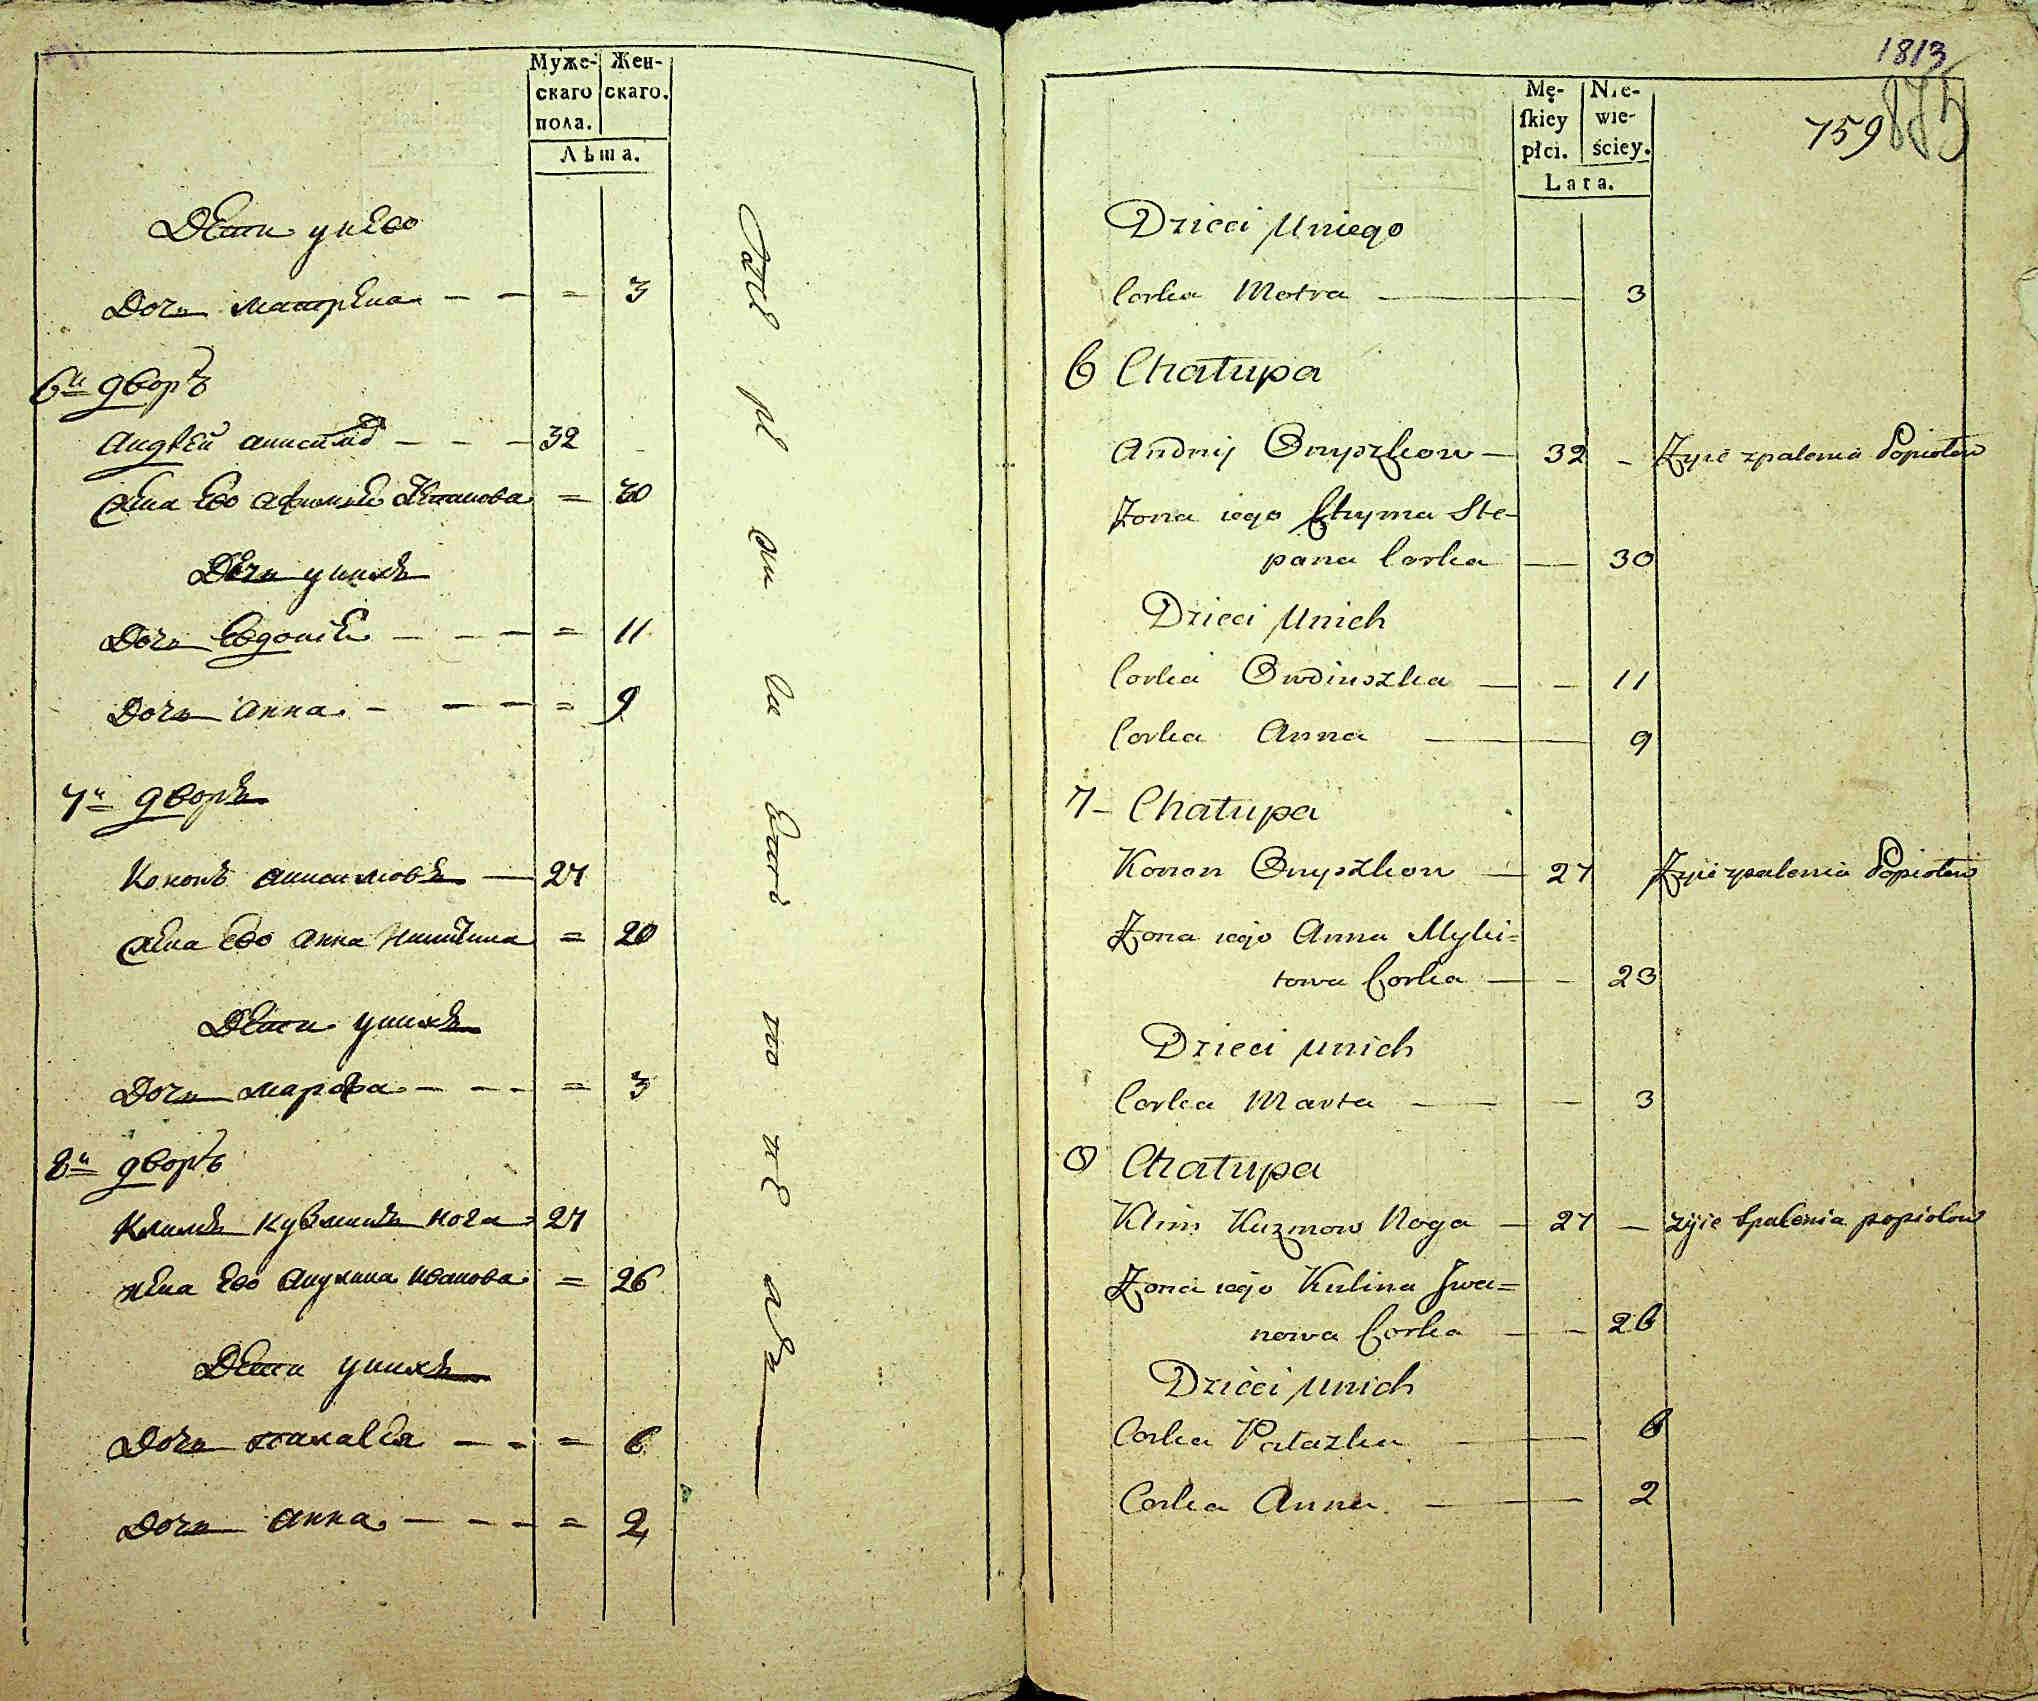 Муже-
скаго
пола.
Жен-
скаго.
Лѣта.
Дети унего
Дочь Матрена — — = 3
6й дворъ
Андрей Анисимов — — — 32
жена его Афимия Степанова = 30
Дети унихъ
Дочь Евдокия — — — = 11
Дочь Анна — — — = 9
7й дворъ
Кононъ Анисимовъ — 27
жена его Анна Никитина = 20
Дети унихъ
Дочь Марфа — — — = 3
8й дворъ
Климъ Кузминъ Нога 27
жена его Акулина Иванова = 26
Дети унихъ
Дочь Палагея — — = 6
Дочь Анна — — — = 2
1813
759
875
Mę-
ſkiey
płci.
Nie-
wie-
ściey.
Lata.
Dzieci Uniego
Corka Motra — 3
6 Chałupa
Andrij Onyszkow — 32 — Zyie zpalenia Popiołow
Zona iego Chyma Ste-
pana Corka — 30
Dzieci Unich
Corka Owdiuszka — — 11
Corka Anna — 9
7 — Chałupa
Konon Onyszkow — 27 Zyie zpalenia Popiołow
Zona iego Anna Myki=
towa Corka — — 23
Dzieci unich
Corka Marta — — 3
8 Chałupa
Klim Kuzmow Noga — 27 — zyie spalenia popiołow
Zona iego Kulina Iwa=
nowa Corka — — 26
Dzieci unich
Corka Pałazka — 6
Corka Anna — 2